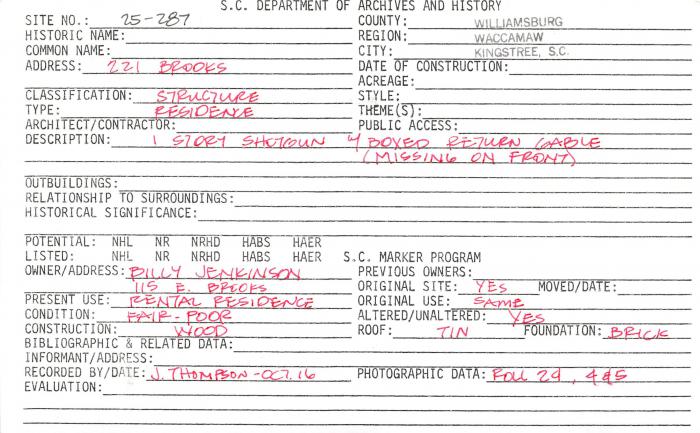 S.C. DEPARTMENT OF ARCHIVES AND HISTORY
SITE NO.: 25-287 COUNTY: WILLIAMSBURG
HISTORIC NAME: REGION: WACCAMAW
COMMON NAME: CITY: KINGSTREE, S.C.
ADDRESS: 221 BROOKS DATE OF CONSTRUCTION:
ACREAGE:
CLASSIFICATION: STRUCTURE STYLE:
TYPE: RESIDENCE THEME(S):
ARCHITECT/CONTRACTOR: PUBLIC ACCESS:
DESCRIPTION: 1 STORY SHOTGUN w/ BOXED RETURN GABLE
(MISSING ON FRONT)
OUTBUILDINGS:
RELATIONSHIP TO SURROUNDINGS:
HISTORICAL SIGNIFICANCE:
POTENTIAL: NHL NR NRHD HABS HAER
LISTED: NHL NR NRHD HABS HAER S.C. MARKER PROGRAM
OWNER/ADDRESS: BILLY JENKINSON PREVIOUS OWNERS:
115 E. BROOKS ORIGINAL SITE: YES MOVED/DATE:
PRESENT USE: RENTAL RESIDENCE ORIGINAL USE: SAME
CONDITION: FAIR-POOR ALTERED/UNALTERED: YES
CONSTRUCTION: WOOD ROOF: TIN FOUNDATION: BRICK
BIBLIOGRAPHIC & RELATED DATA:
INFORMANT/ADDRESS:
RECORDED BY/DATE: J. THOMPSON-OCT. 16 PHOTOGRAPHIC DATA: ROLL 29, 4&5
EVALUATION: